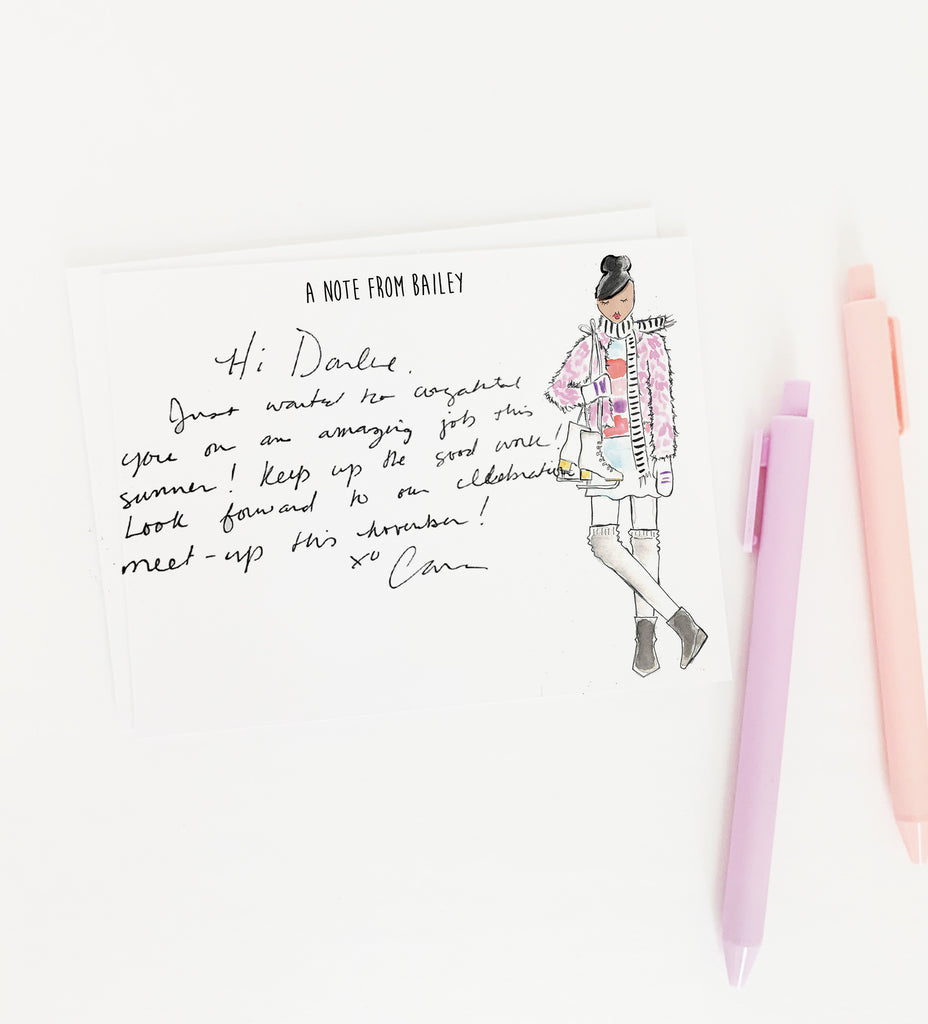 A NOTE FROM BAILEY
Hi Darlene.
Just wanted to
you on an amazing job this
summer! Keep up the good work!
Look forward to our celebration
meet-up this November!
xo